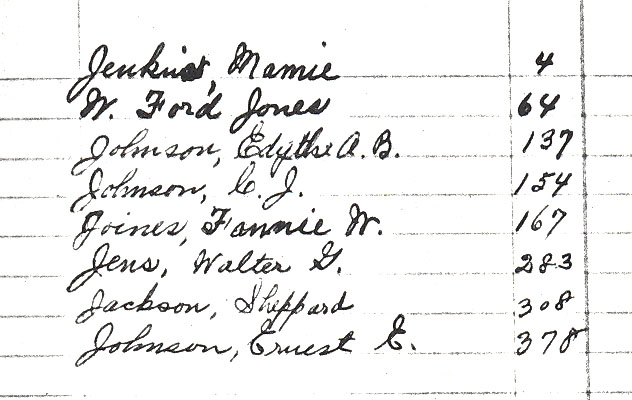 Jenkins, Mamie 4
W. Ford Jones 64
Johnson, Edythe A. B. 137
Johnson, C. J. 154
Joines, Fannie W. 167
Jens, Walter G. 283
Jackson, Sheppard 308
Johnson, Ernest E. 378